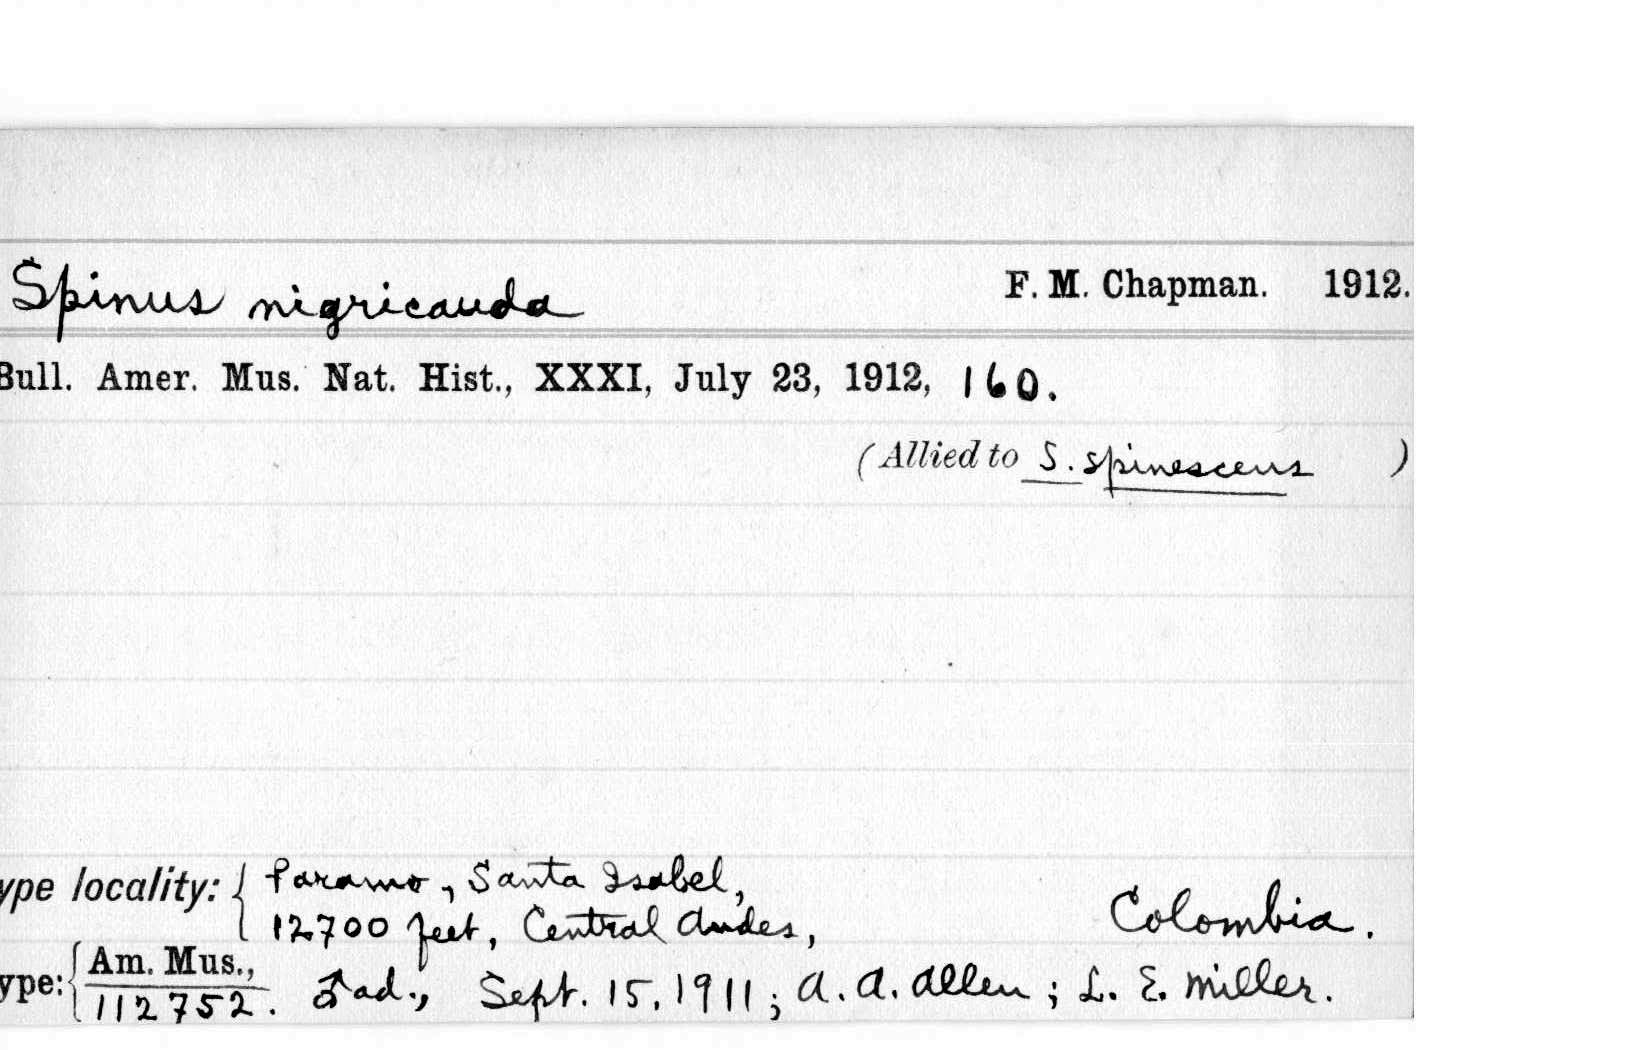 Spinus nigricauda F. M. Chapman. 1912.
Bull. Amer. Mus. Nat. Hist., XXXI, July 23, 1912, 160.
(Allied to S. spinescens )
ype locality: { Paramo, Santa Isabel,
12700 feet, Central Andes, Colombia.
ype: { Am. Mus.,
112752. ♂ ad., Sept. 15, 1911; A. A. Allen; L. E. Miller.